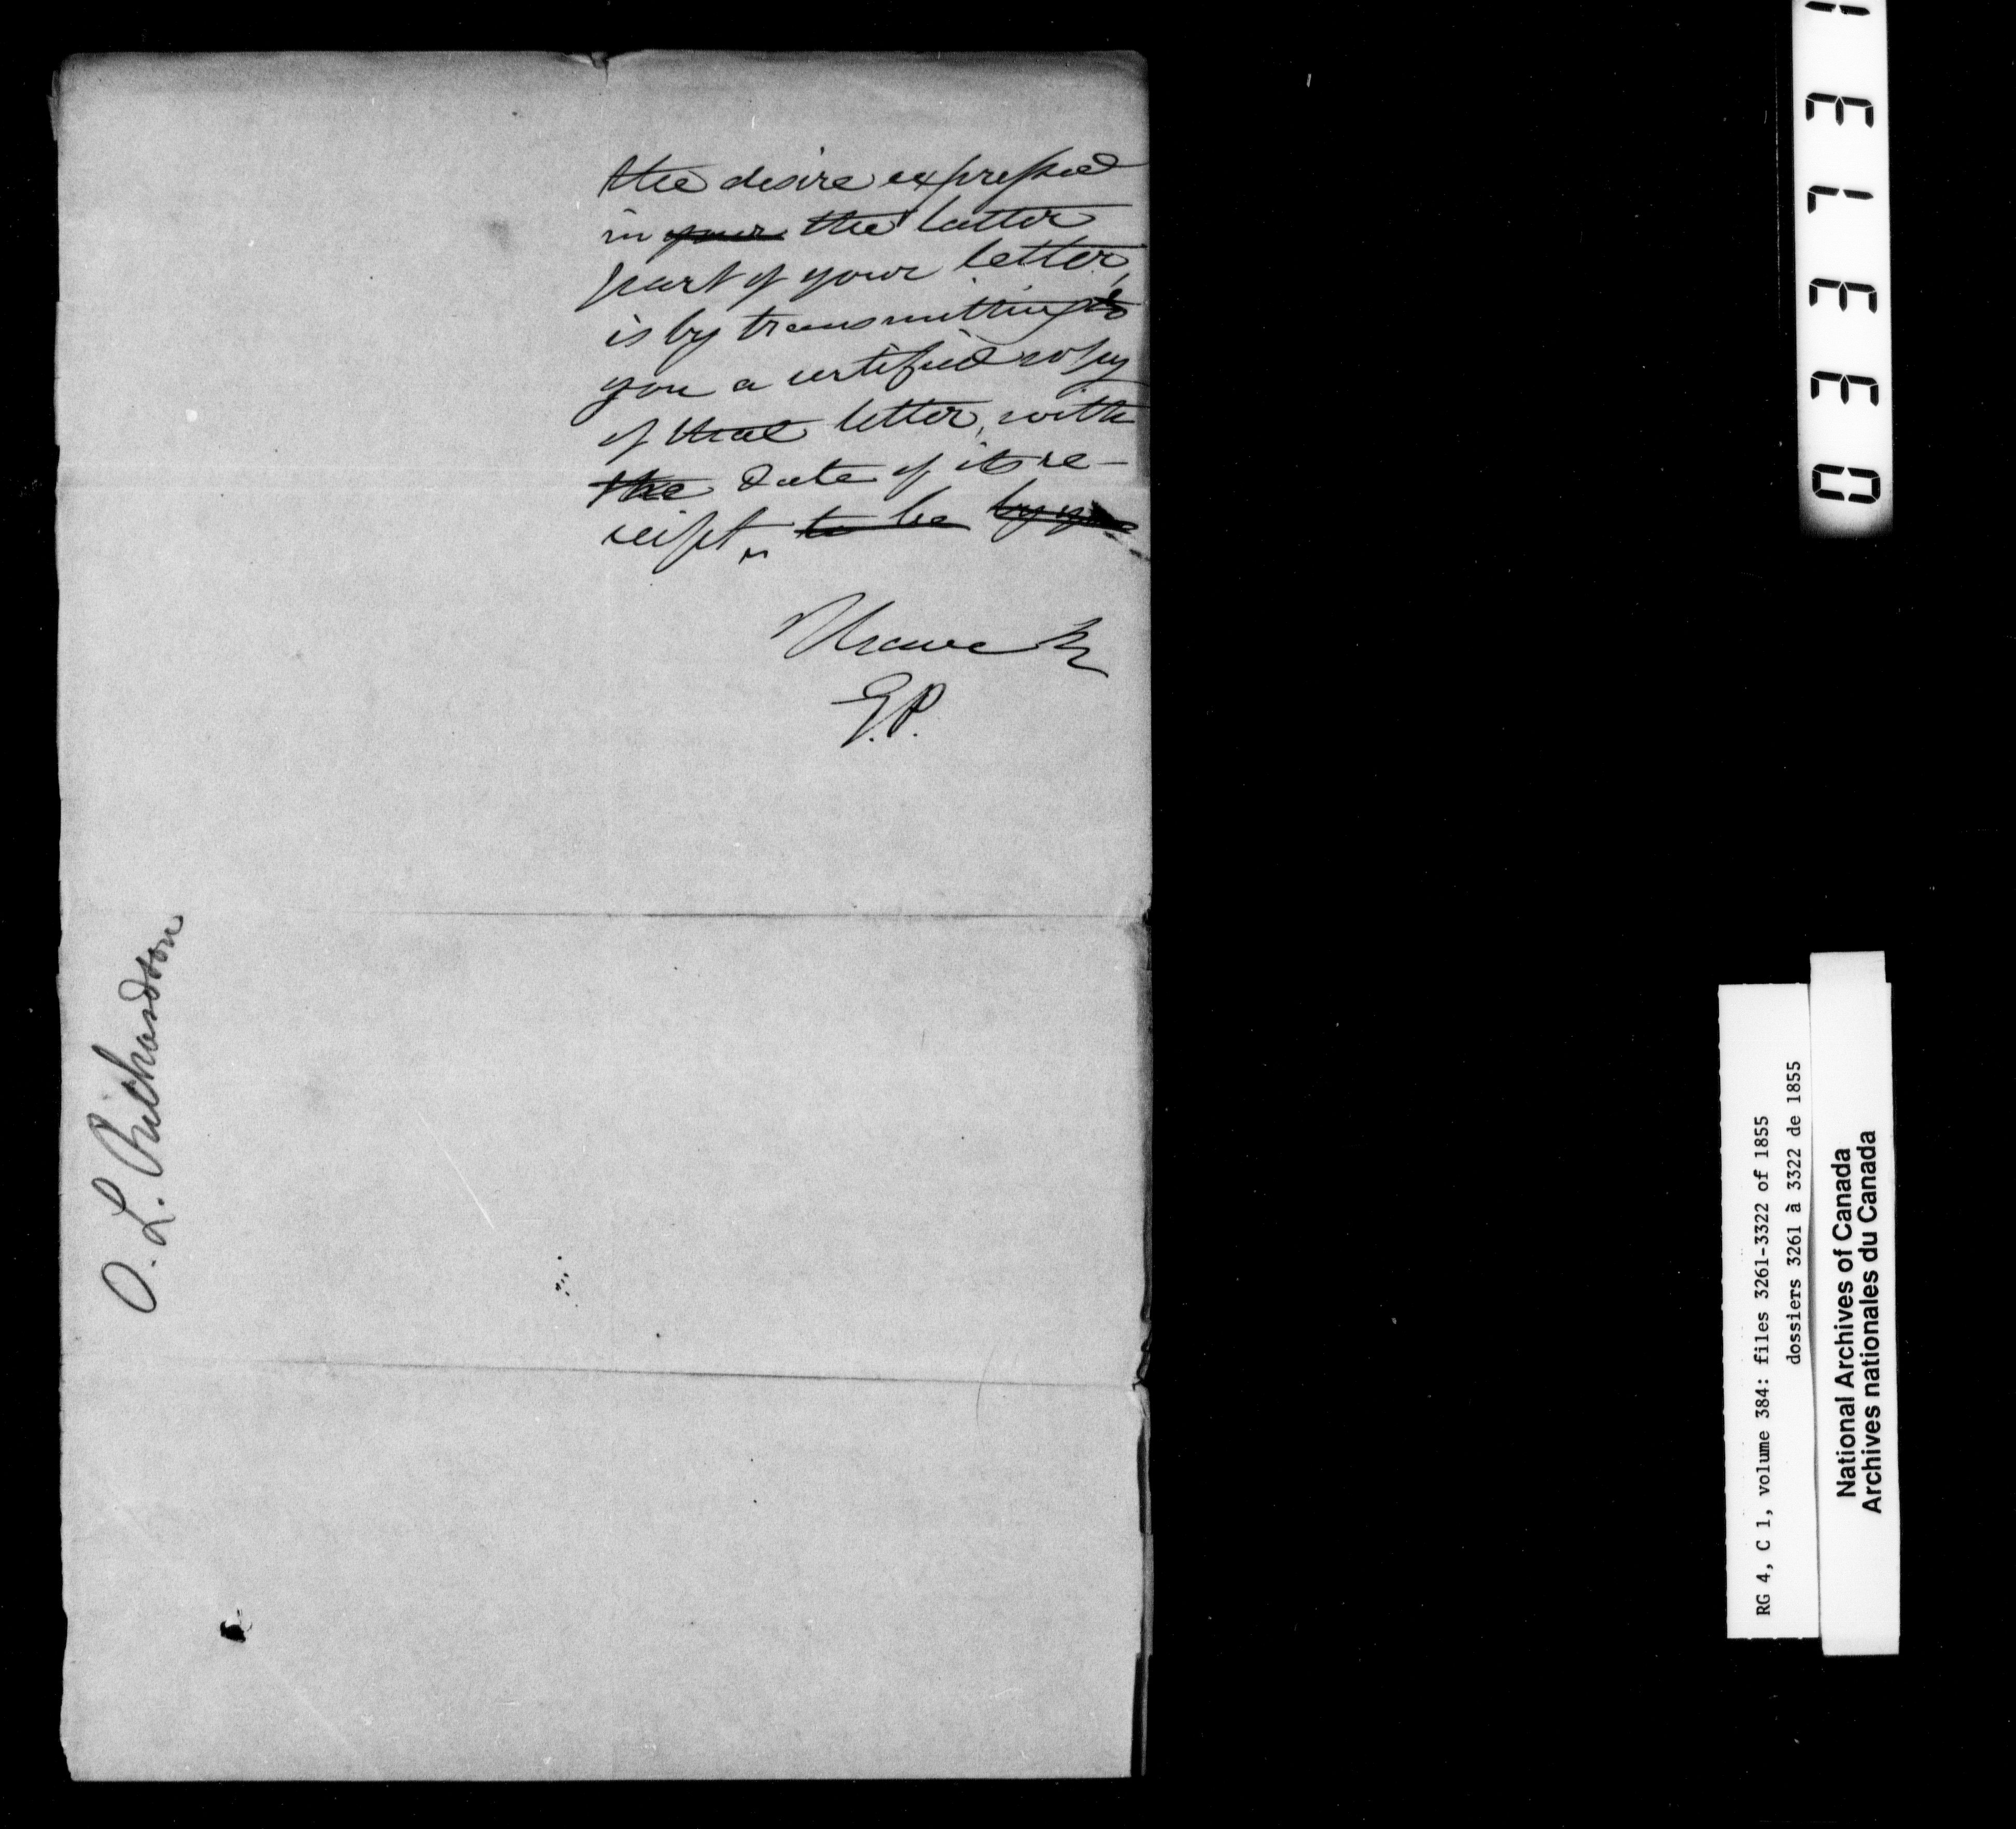 the desire expressed
in your the latter
part of your letter,
is by transmitting to
you a certified copy
of that letter, with
the date of its re-
ceipt to be by
I have &c
E.P.
O. L. Richardson
033731
RG 4, C 1, volume 384: files 3261-3322 of 1855
dossiers 3261 à 3322 de 1855
National Archives of Canada
Archives nationales du Canada